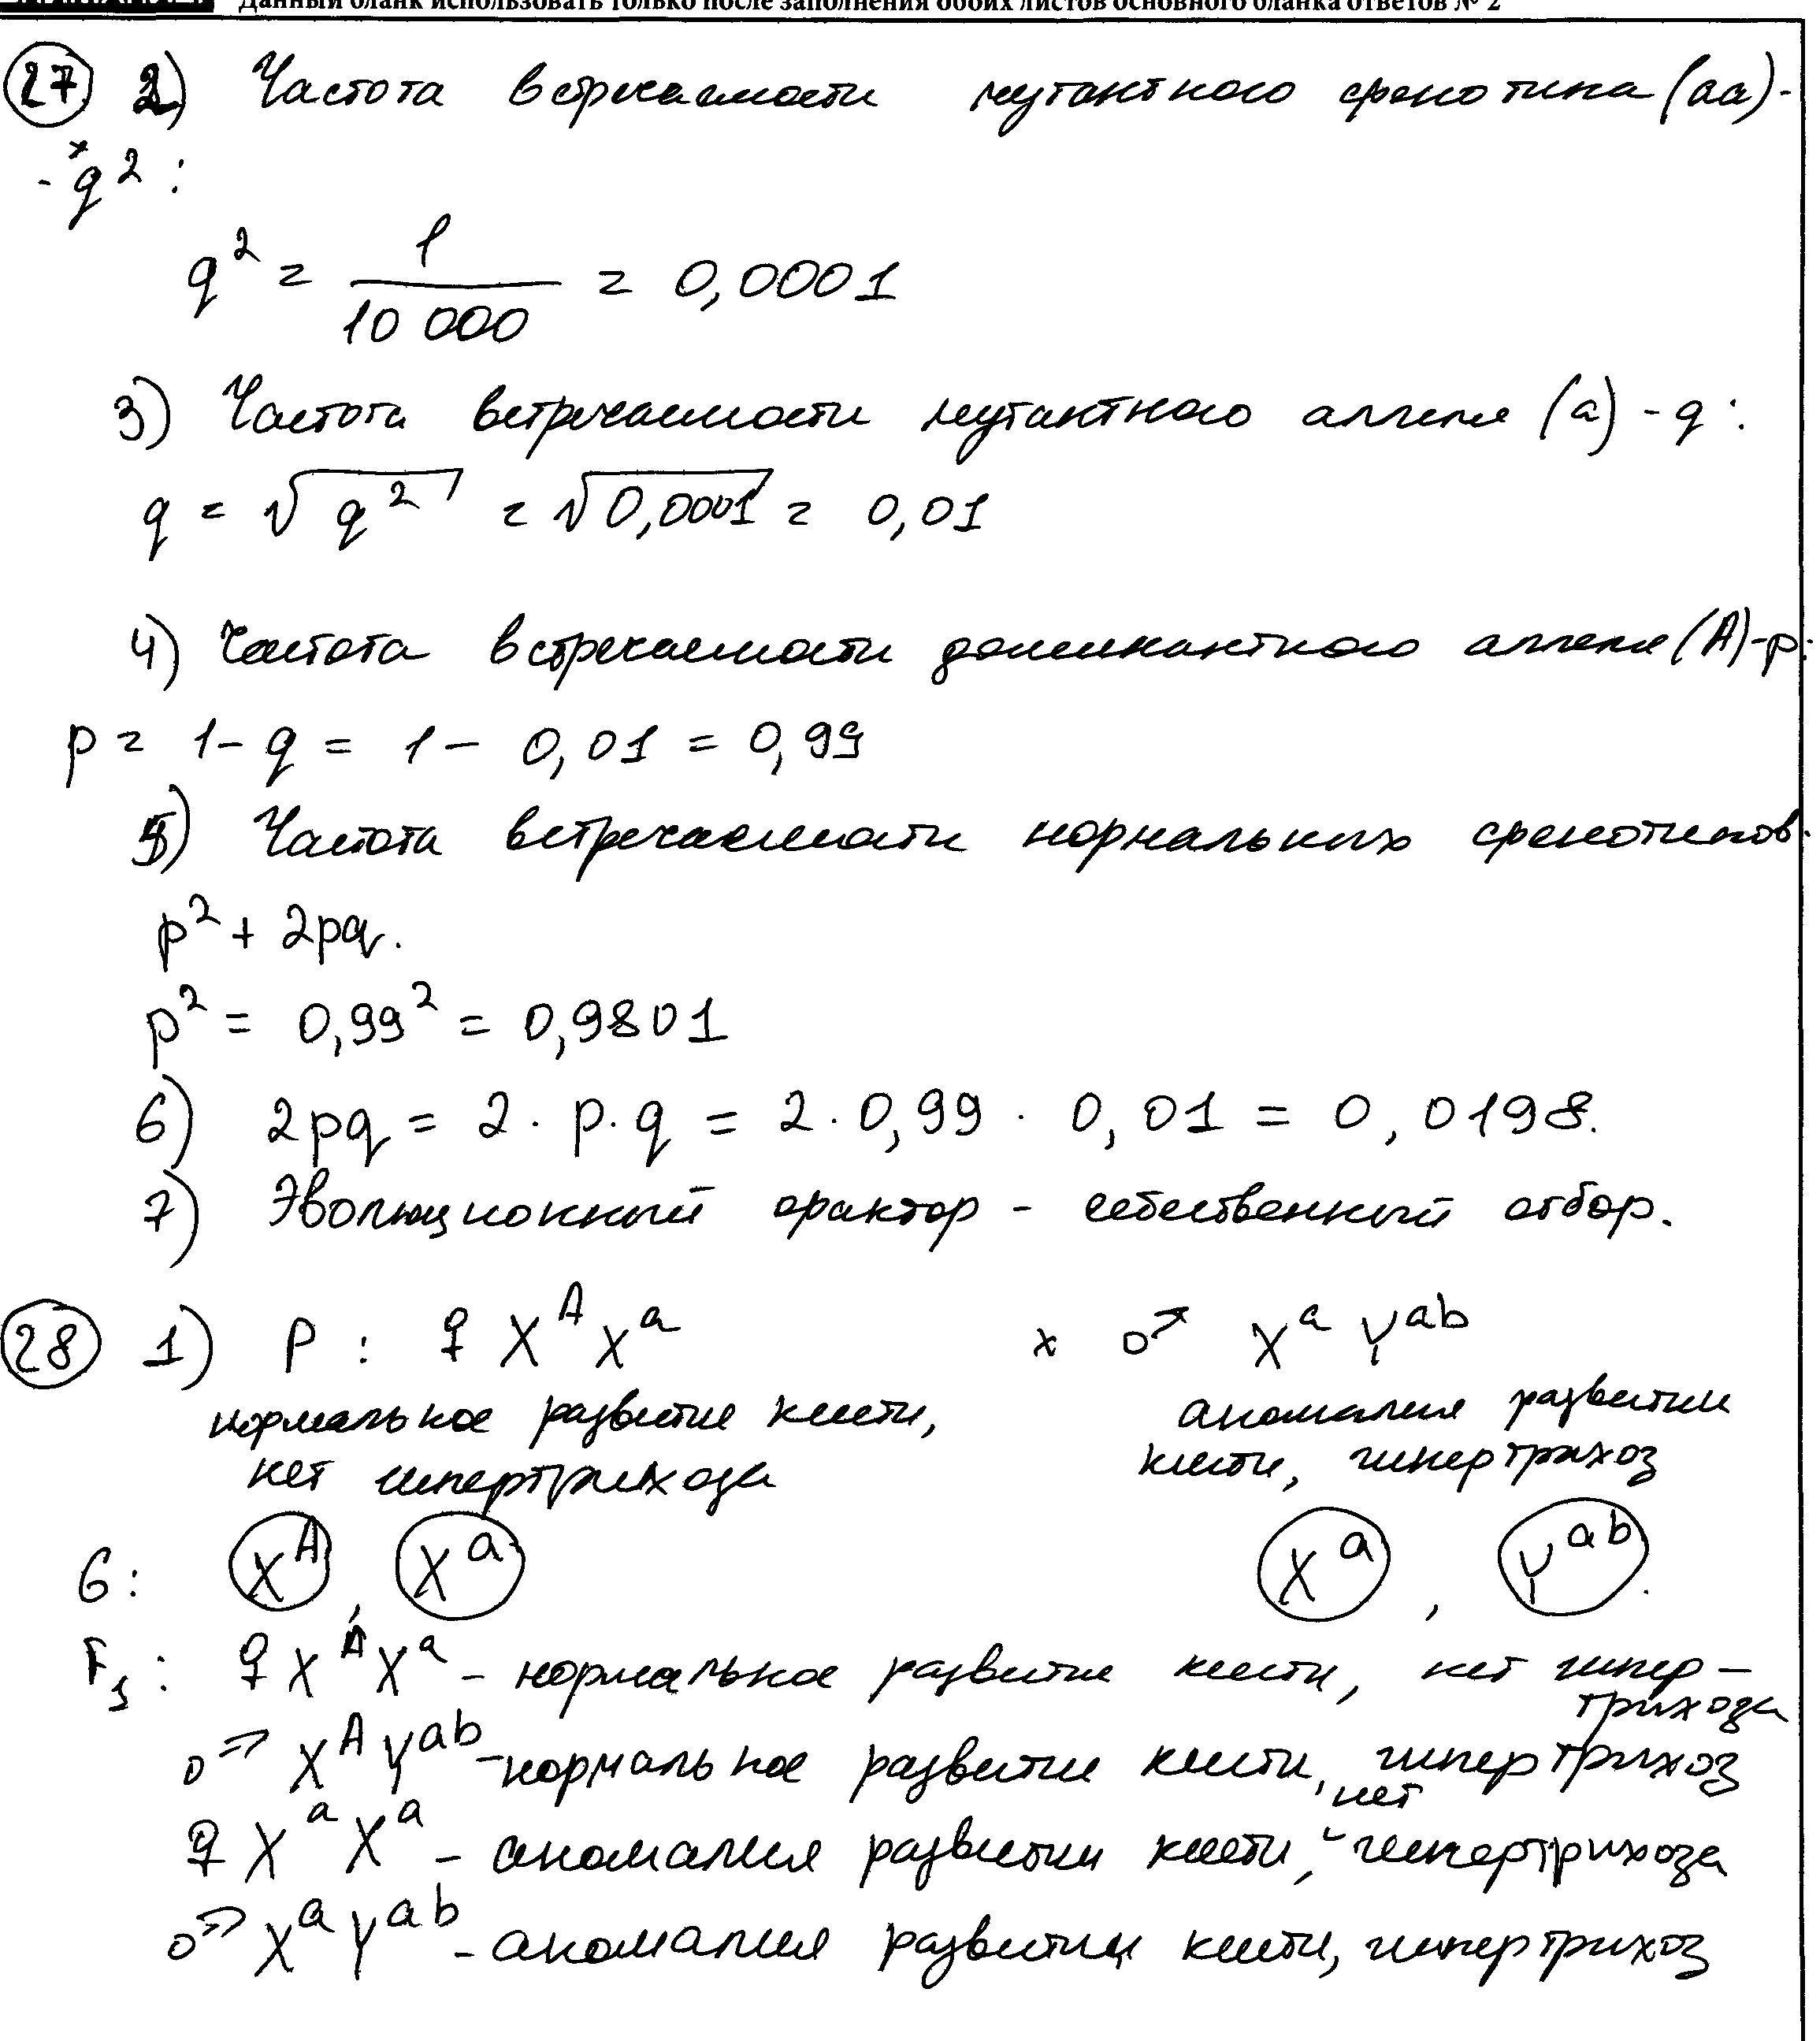 Данный бланк использовать только после заполнения обоих листов основного бланка ответов № 2
27 2) Частота встречаемости мутантного фенотипа (aa) -
- q² :
q² = 1 / 10 000 = 0,0001
3) Частота встречаемости мутантного аллеля (a) - q :
q = √q² = √0,0001 = 0,01
4) Частота встречаемости доминантного аллеля (A) - p:
p = 1 - q = 1 - 0,01 = 0,99
5) Частота встречаемости нормальных фенотипов:
p² + 2pq.
p² = 0,99² = 0,9801
6) 2pq = 2 · p · q = 2 · 0,99 · 0,01 = 0,0198.
7) Эволюционный фактор - естественный отбор.
28 1) P : ♀ Xᴬ Xᵃ x ♂ Xᵃ Yᵃᵇ
нормальное развитие кисти, аномалия развития
нет гипертрихоза кисти, гипертрихоз
G: Xᴬ , Xᵃ Xᵃ , Yᵃᵇ.
F₁ : ♀ Xᴬ Xᵃ - нормальное развитие кисти, нет гипер-
трихоза
♂ Xᴬ Yᵃᵇ - нормальное развитие кисти, гипертрихоз
♀ Xᵃ Xᵃ - аномалия развития кисти, нет гипертрихоза
♂ Xᵃ Yᵃᵇ - аномалия развития кисти, гипертрихоз